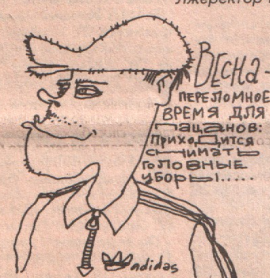 Лжеректор
ВЕСНА -
ПЕРЕЛОМНОЕ
ВРЕМЯ ДЛЯ
ПАЦАНОВ:
ПРИХОДИТСЯ
СНИМАТЬ
ГОЛОВНЫЕ
УБОРЫ.....
adidas